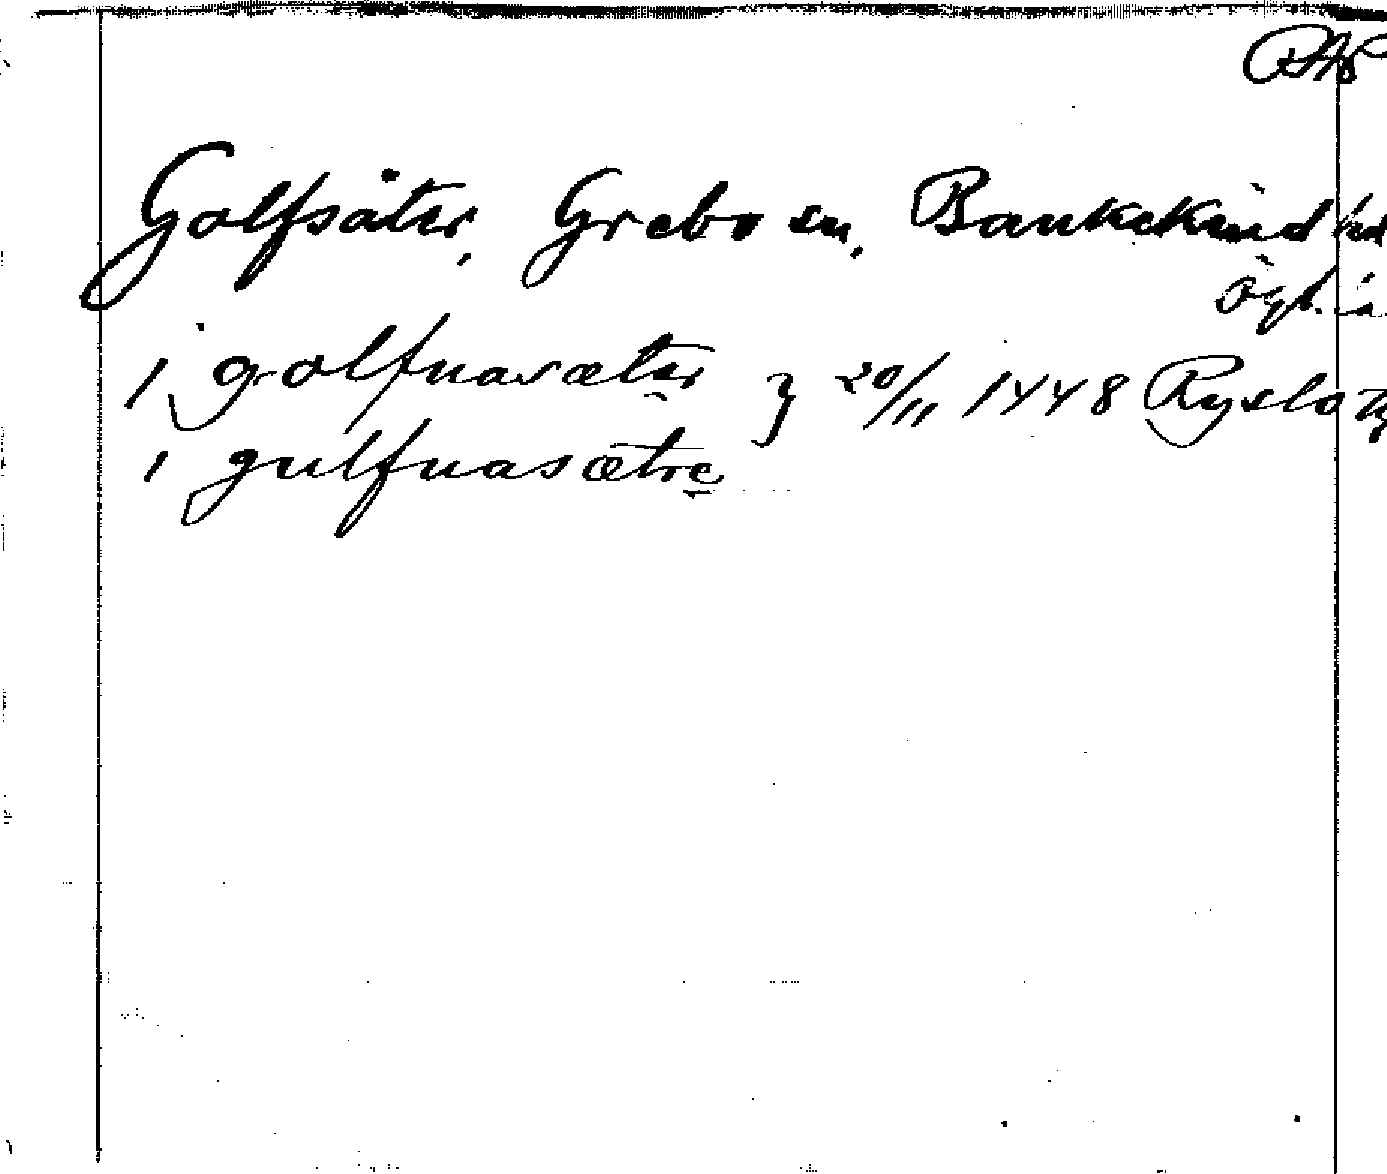 RAp
Golfsäter, Grebo sn, Bankekind hd
Ögl.
i golfnasæter } 20/11 1448 Ryslo
i gulfnasætre